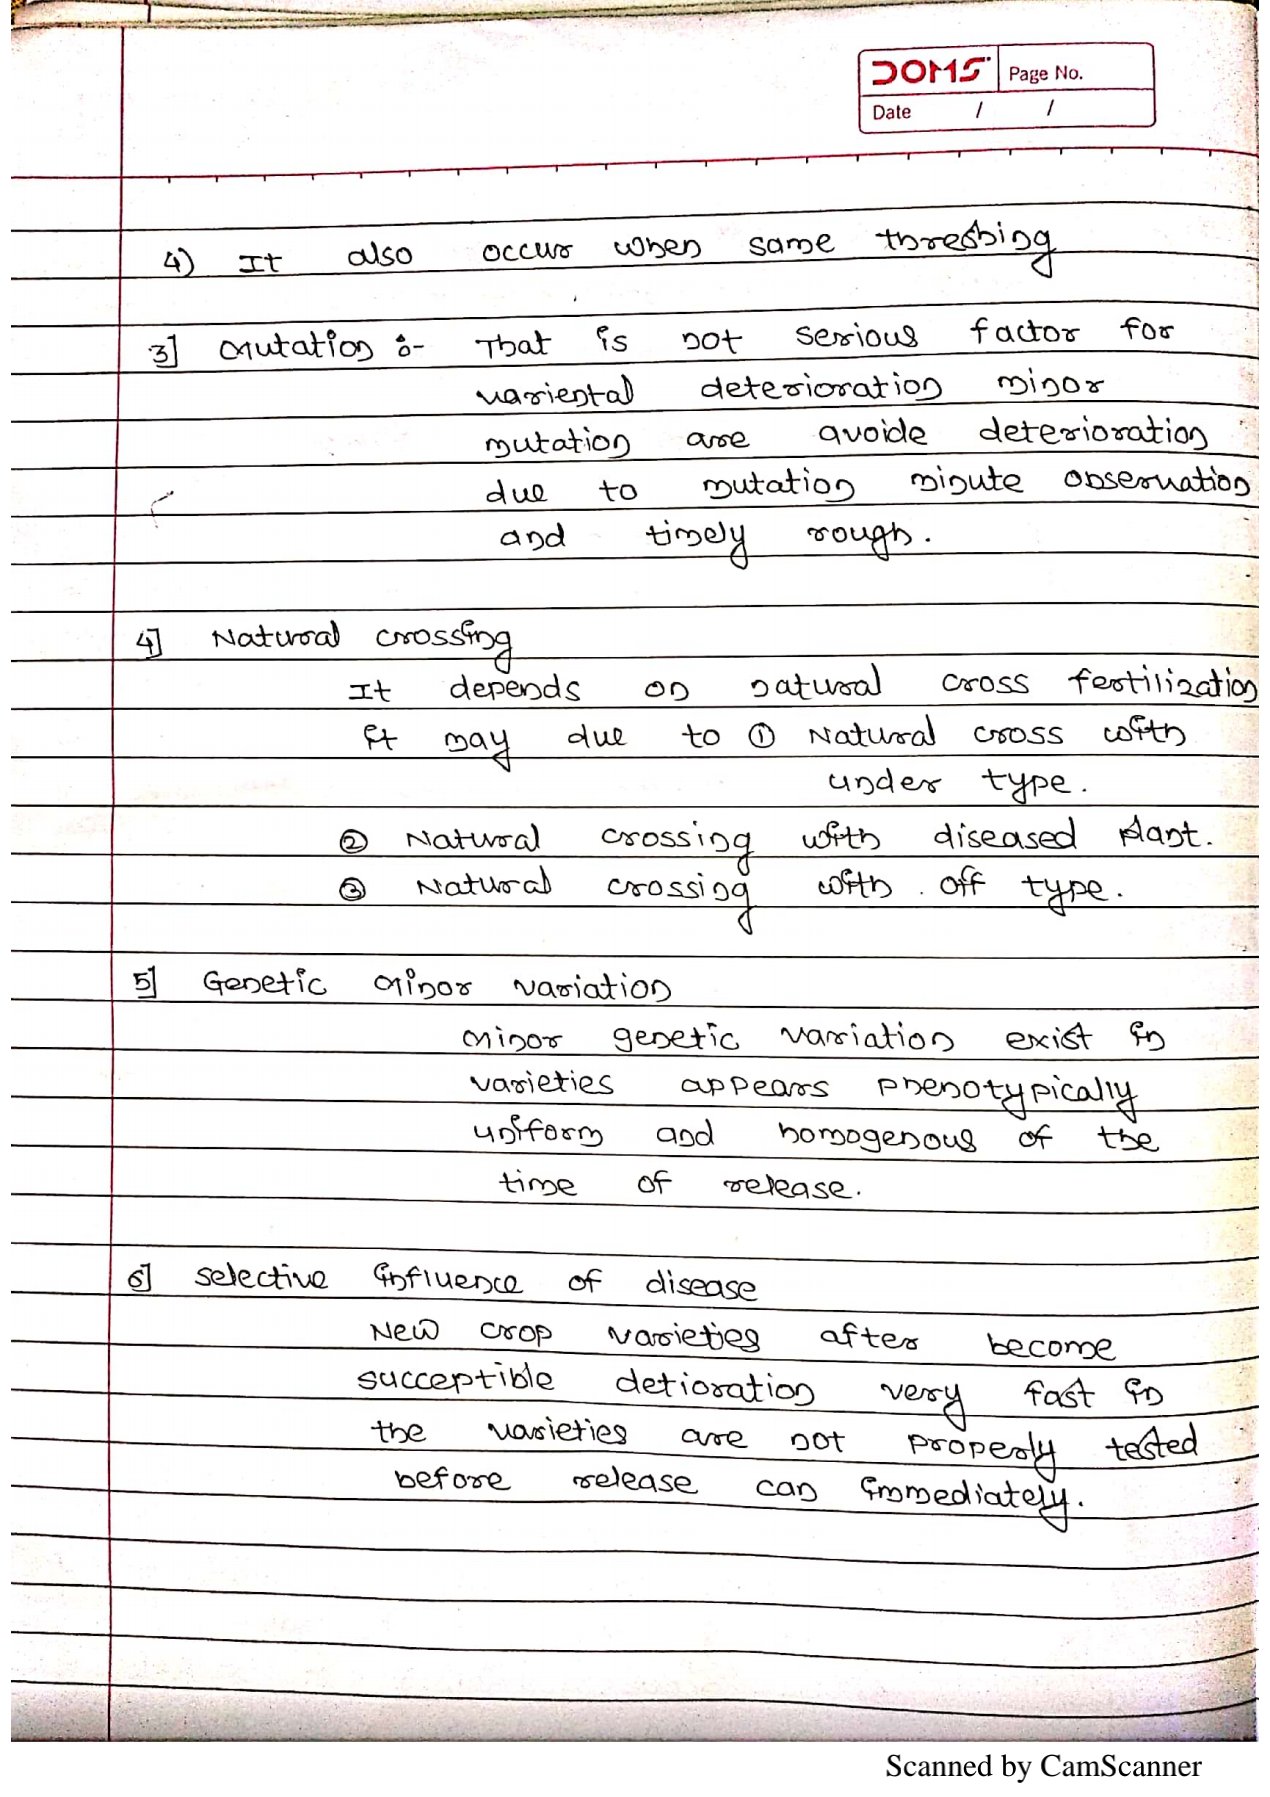 DOMS Page No.
Date / /
4) It also occur when same threshing
3] Mutation :- That is not serious factor for
variental deterioration minor
mutation are avoide deterioration
due to mutation minute observation
and timely rough.
4] Natural crossing
It depends on natural cross fertilization
it may due to ① Natural cross with
under type.
② Natural crossing with diseased plant.
③ Natural crossing with off type.
5] Genetic minor variation
minor genetic variation exist in
varieties appears phenotypically
uniform and homogenous of the
time of release.
6] selective influence of disease
New crop varieties after become
succeptible detioration very fast in
the varieties are not properly tested
before release can immediately.
Scanned by CamScanner